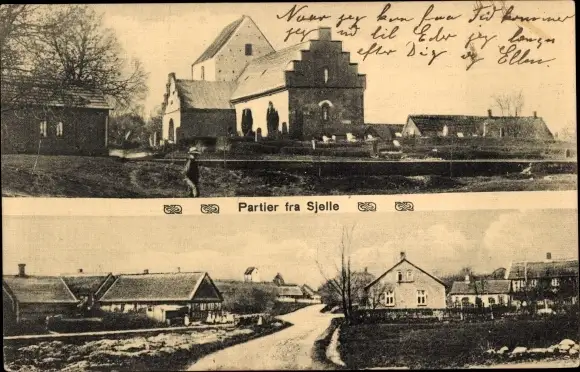 Naar jeg kan faa Tid kommer
jeg ud til Eder jeg længes
efter Dig og Ellen
Partier fra Sjelle